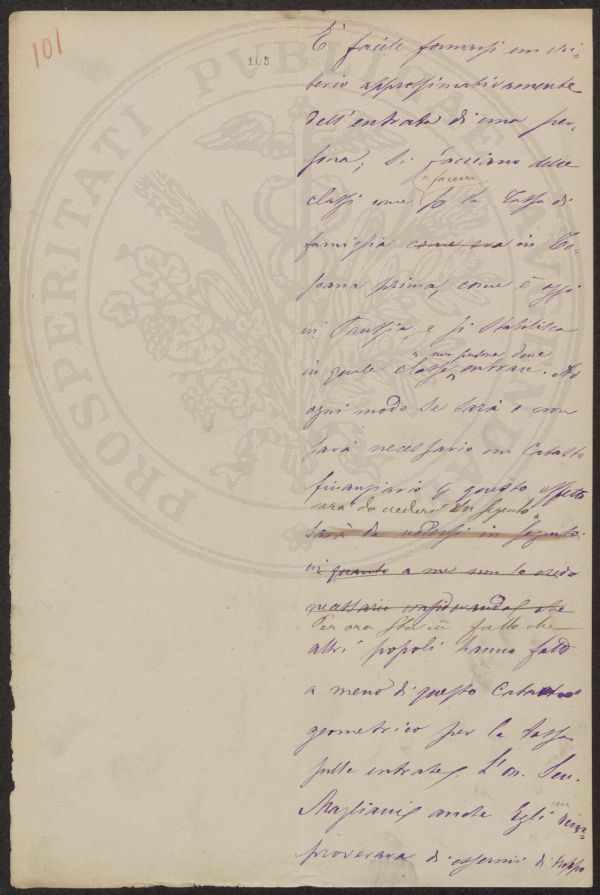 101
105
PROSPERITATI PVBLICAE AVGENDAE
È facile formarsi un cri-
terio approssimativamente
dell'entrata di una per-
sona; si facciano dieci
classi come si faceva
fo la tassa di
famiglia come era in To-
scana prima, come è oggi
in Prussia, e si stabilisca
in quale classe una persona deve entrare. Ad
ogni modo se sarà o non
sarà necessario un Catasto
finanziario a questo effetto
sarà da vedersi in seguito
sarà da vedersi in seguito.
in quanto a me non lo credo
necessario considerando che
Per ora sta in fatto che
altri popoli hanno fatto
a meno di questo Catasto
geometrico per la tassa
sulle entrate. L'on. Sen.
Magliani anche Egli mi rim-
proverava di essermi di troppo